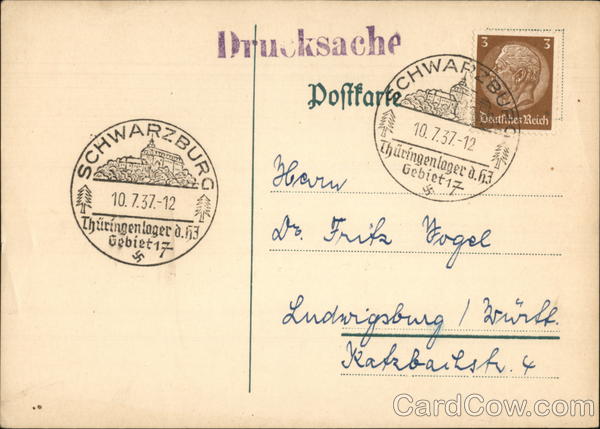 Drucksache
Postkarte
3 3
Deutsches Reich
SCHWARZBURG
10.7.37.-12
Thüringenlager d. HJ
Gebiet 17
SCHWARZBURG
10.7.37.-12
Thüringenlager d. HJ
Gebiet 17
Herrn
Dr. Fritz Vogel
Ludwigsburg / Württ.
Katzbachstr. 4
CardCow.com